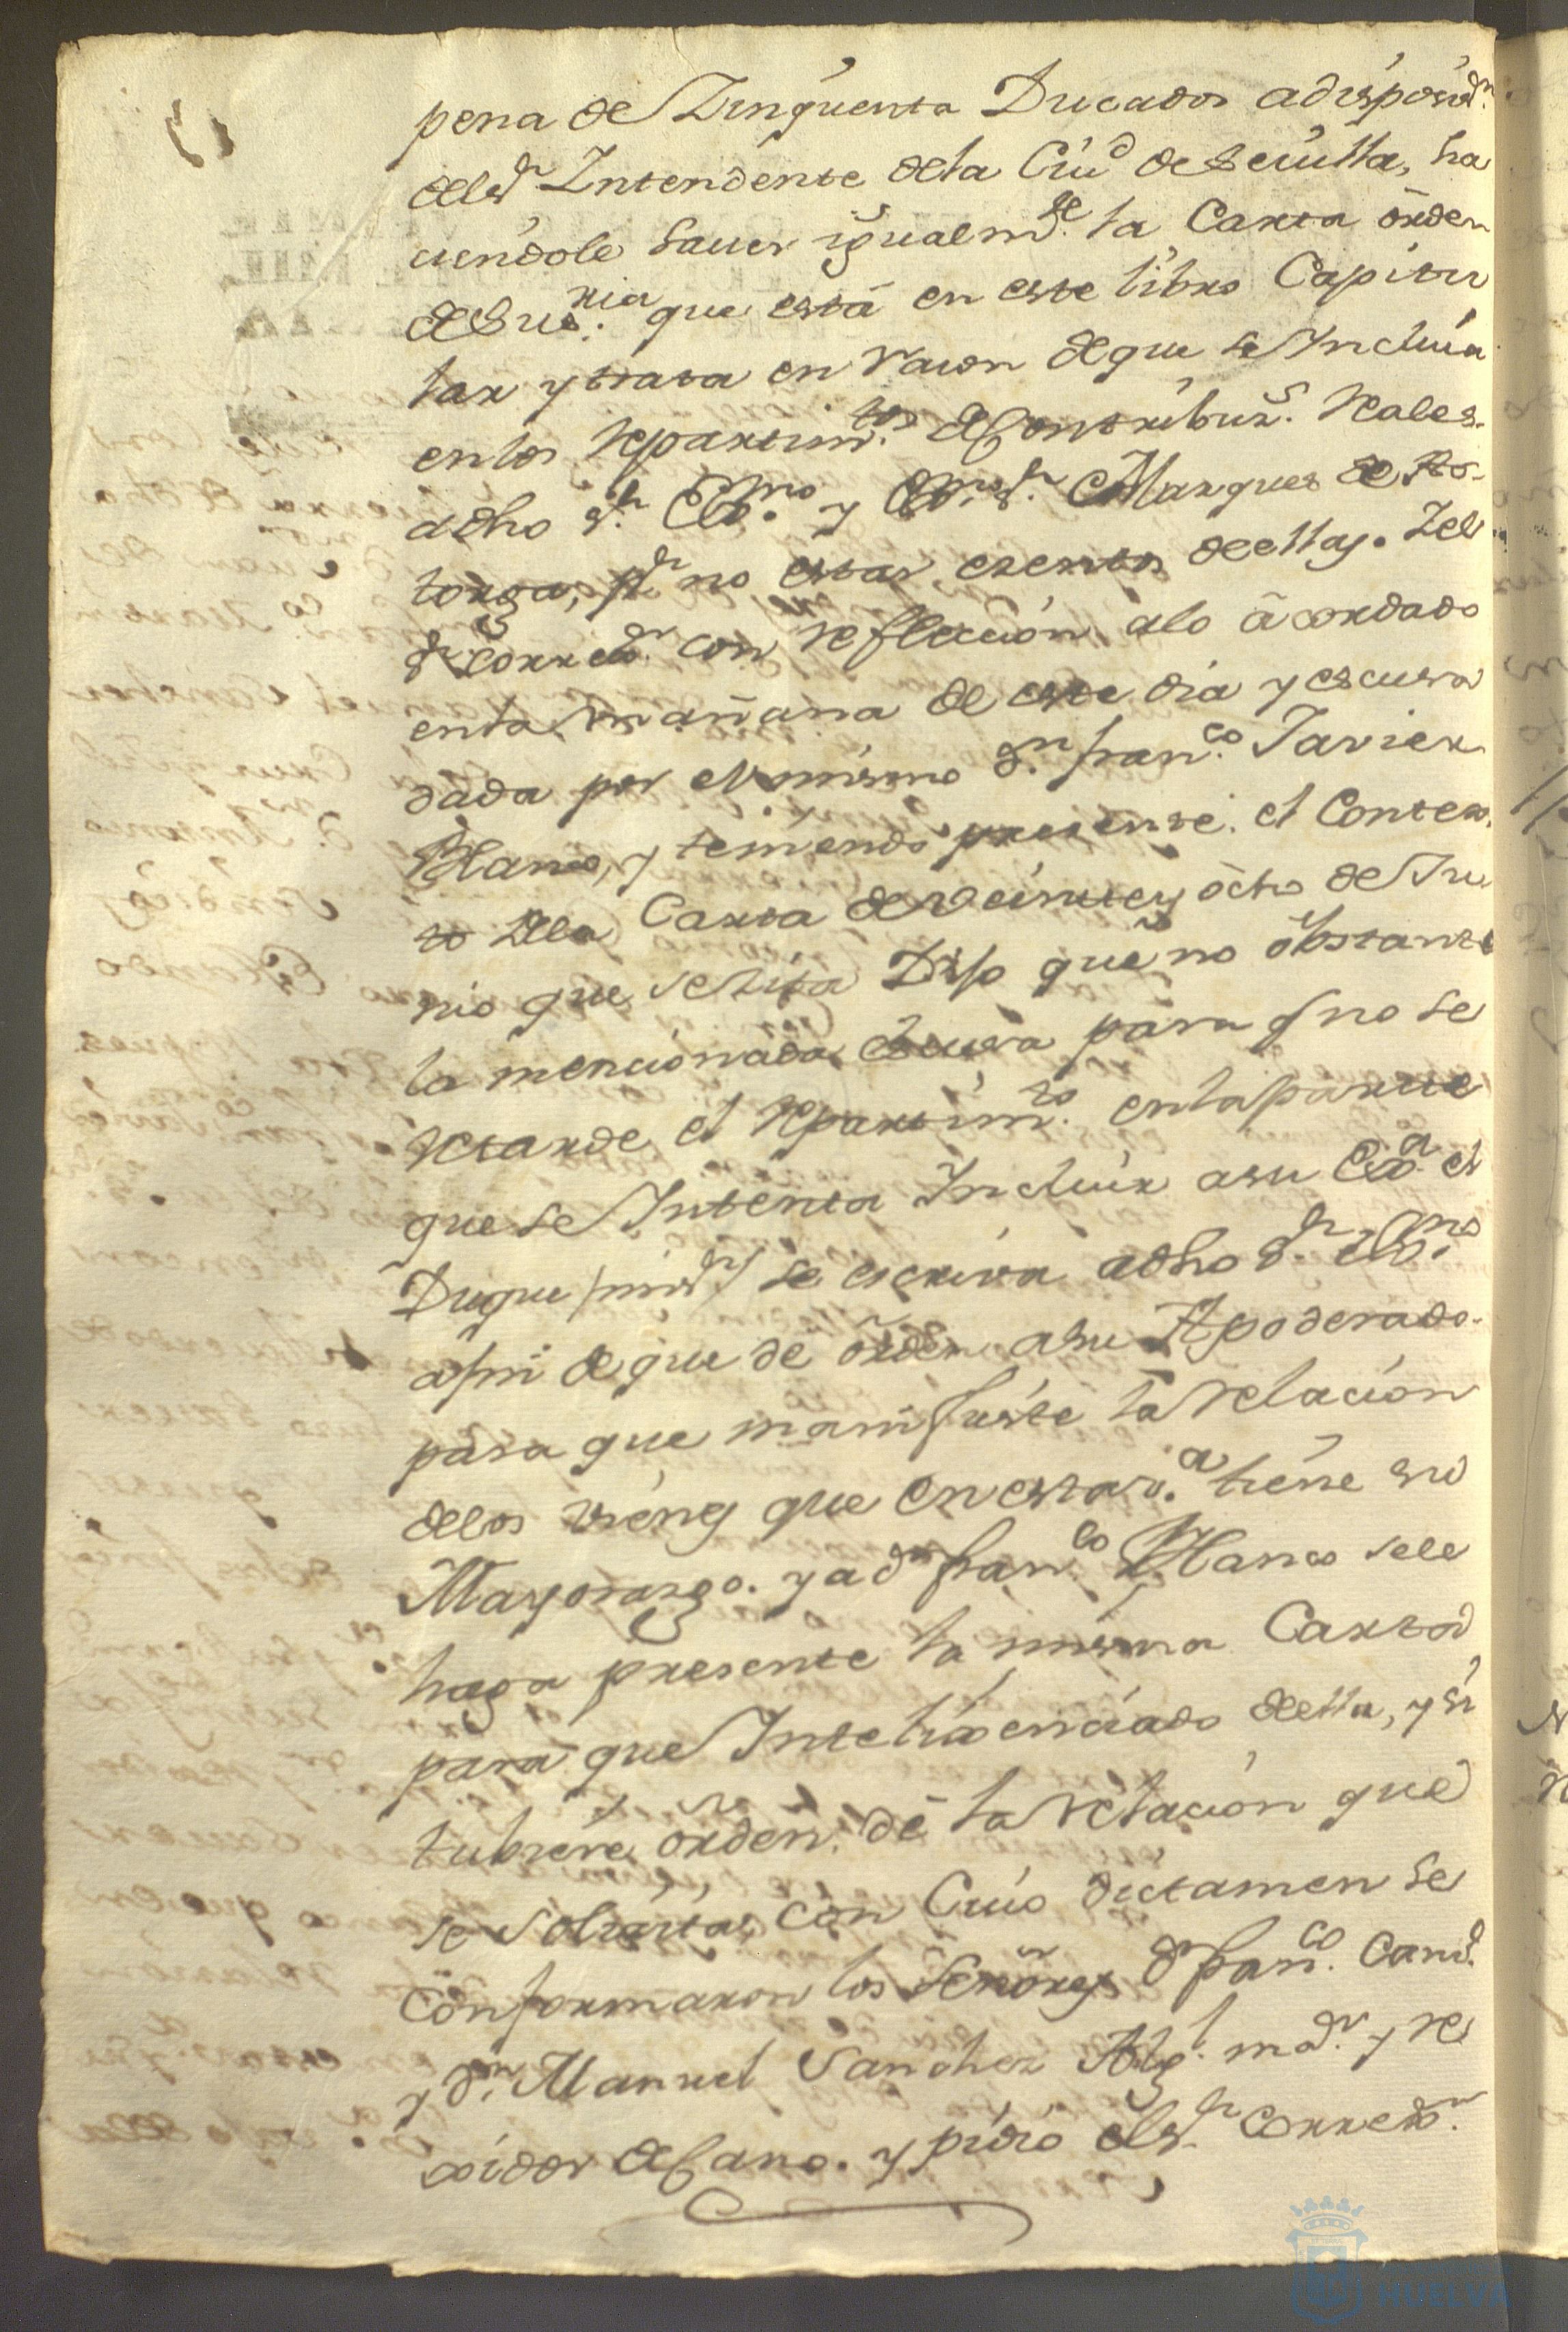 pena de Zinquenta Ducados adisposiz.n
del s.r Yntendente dela Ciu.d de Sevilla, ha
ciendole saver igualm.te la Carta orden
de Su s.ria que está en este libro Capitu
lar y trata en razon de que se Yncluia
en los repartim.tos de Contribuz.s Reales
a dho s.r Ex.mo y Ex.mo s.r Marques de As-
torga, p.r no estar exentos de ellas. Y el
s.r Correx.or con reflecsion alo acordado
enla mañana de este dia y escusa
dada por el mismo d.n fran.co Javier
Blanco, y teniendo presente el Contex
to dela Carta de veinte y ocho de Ju
nio que se cita Dijo que no obstante
la mencionada escusa para q no se
retarde el repartim.to en la parte
que se Yntenta Yncluir a su Ex.a el
Duque mi s.r se escriva a dho s.r Ex.mo
a fin de que dé orden a su Apoderado
para que manifieste la relacion
delos vienes que en esta v.a tiene su
Mayorazgo. y a d.n fran.co Blanco sele
haga presente la misma Carta
para que Yntelixenciado de ella, y si
tubiere orden dé la relacion que
se solicita, con Cuio dictamen se
conformaron los Señores d.n fran.co
y d.n Manuel Sanchez Alg.l m.or y Re
xidor de Cano. y pidio el s.r Correx.or
HUELVA